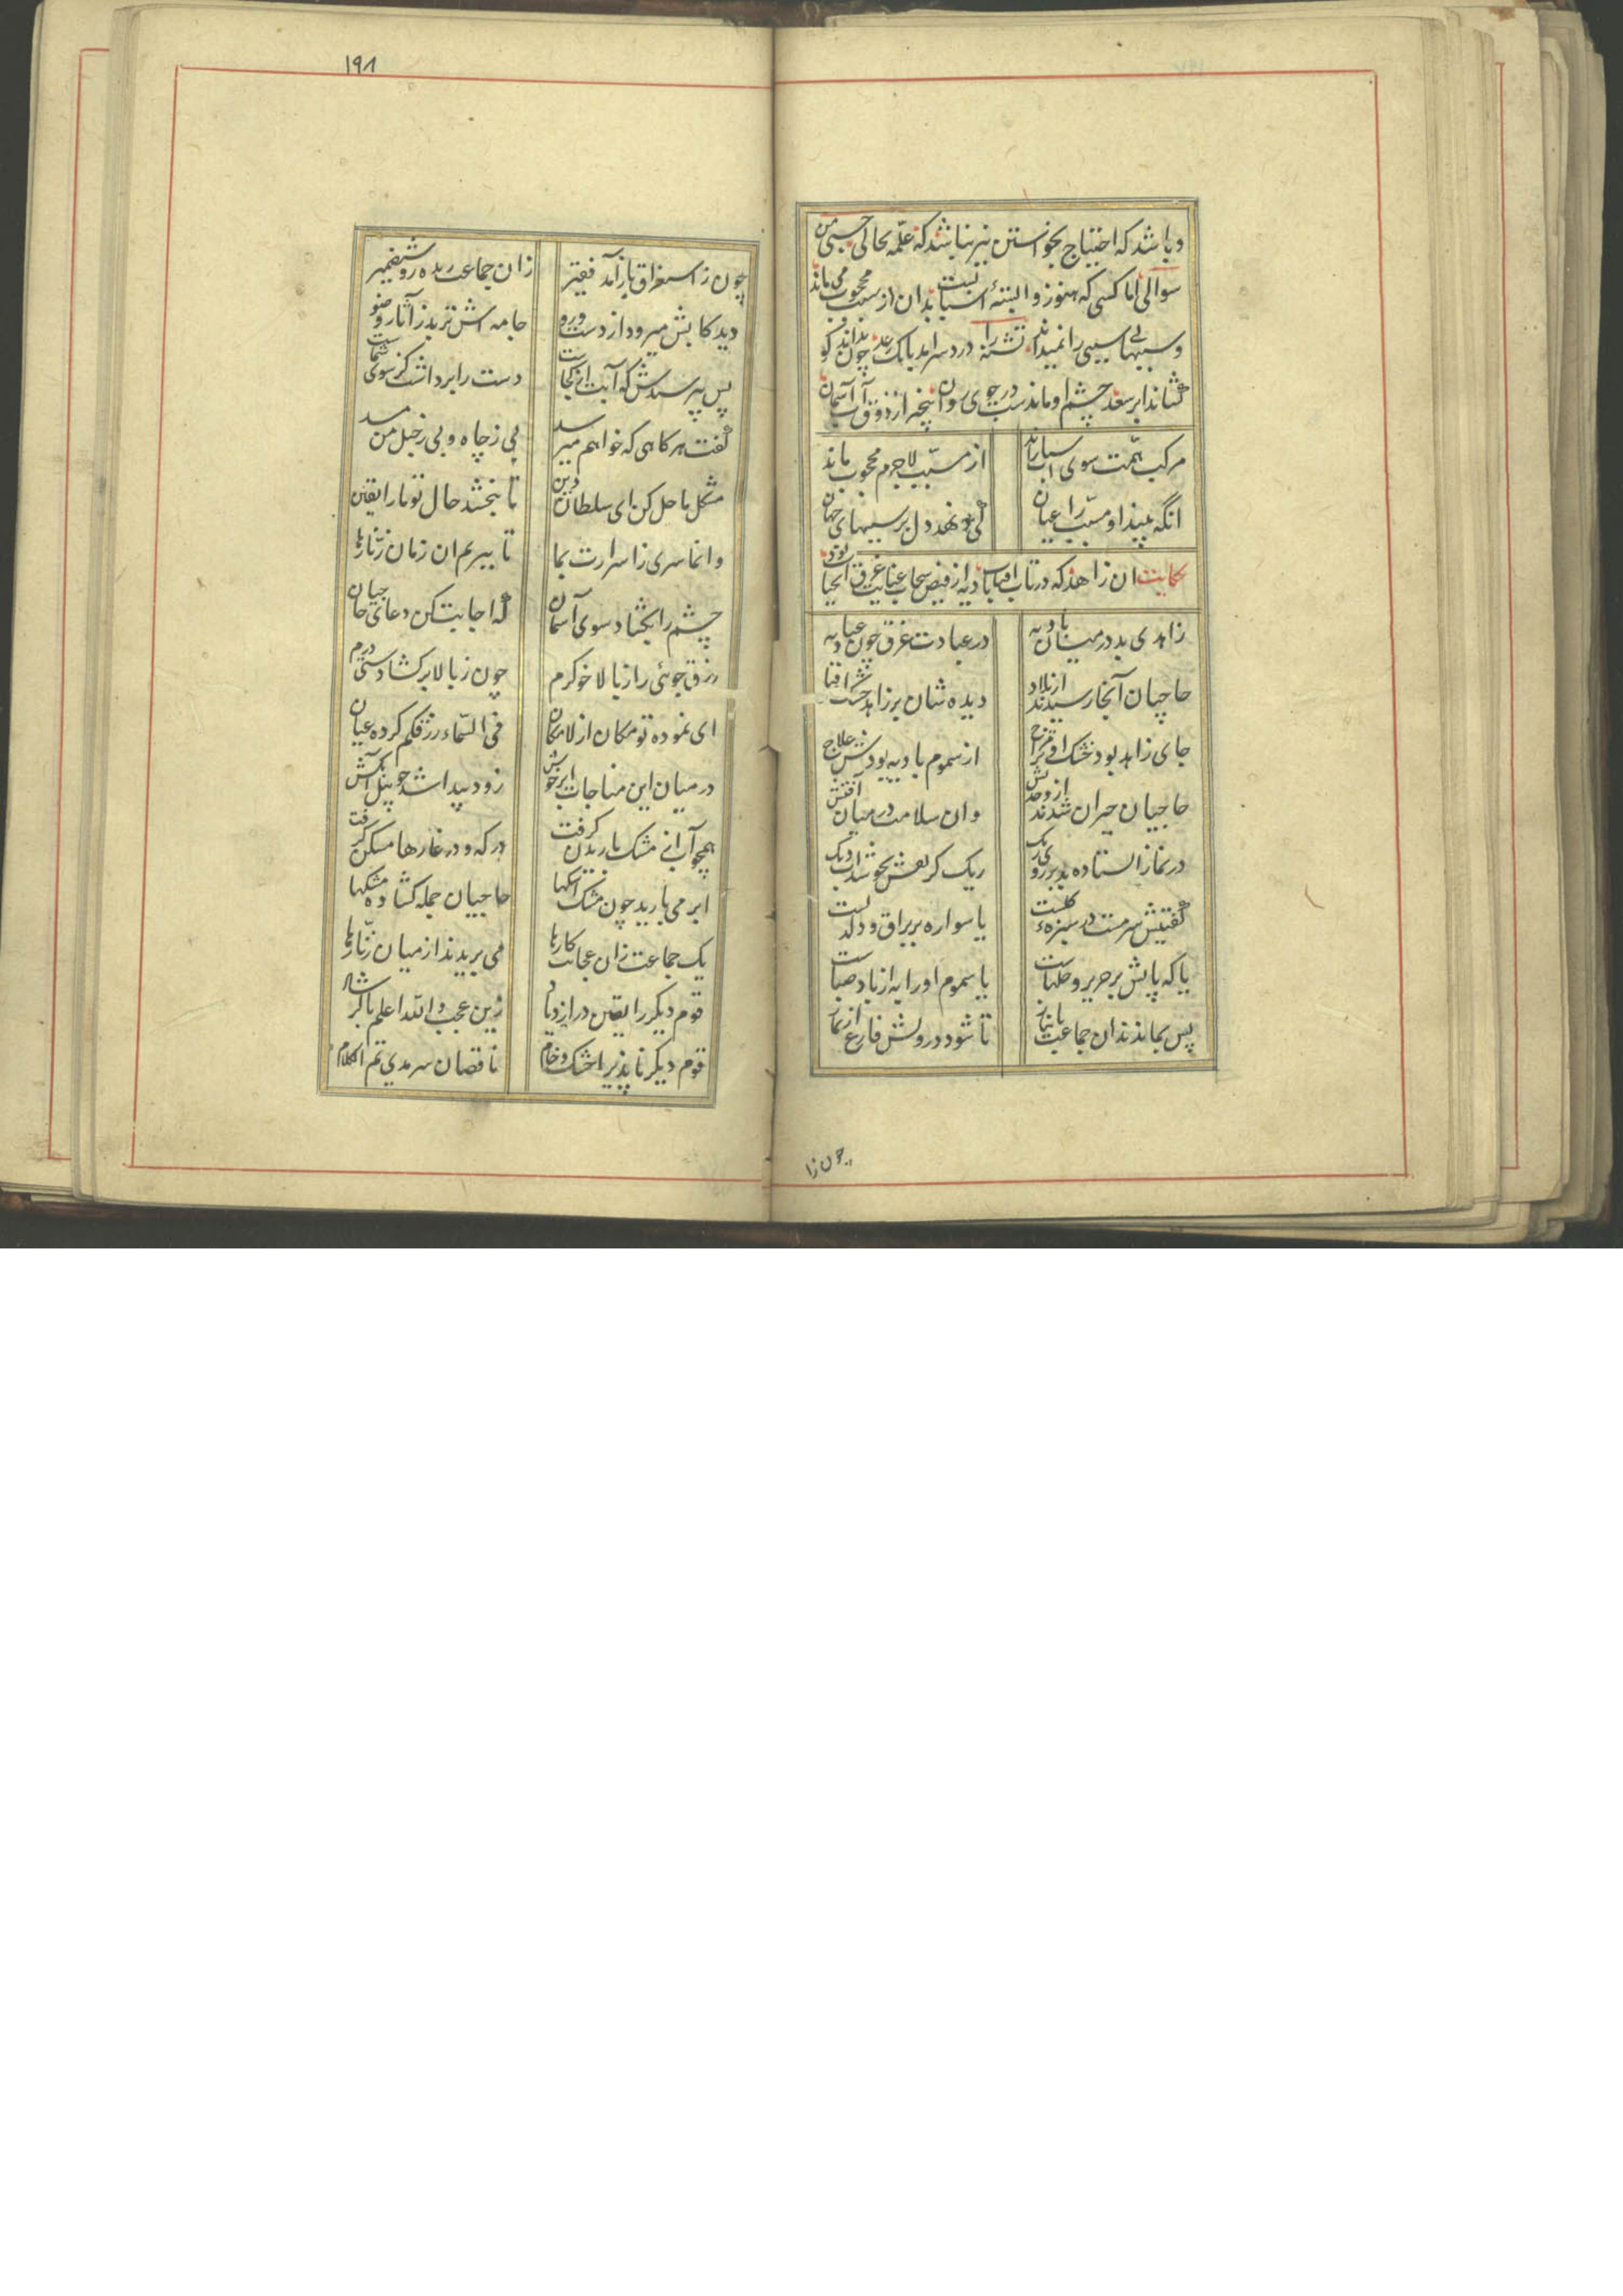 وباشد که احتیاج بخواستن نیز نباشد که علمه بحالی حسبی من
سوالی اما کسی که هنوز وابستهٔ اسباب است بدان از سبب محجوب می ماند
وسببهای بی سببی را نمیداند تشنه را درد سر امد بانک رعد چون نداند کو
کشاند ابر سعد چشم او ماندست در جوی روان بیخبر از ذوق آب آسمان
مرکب همت سوی اسباب راند از مسبب لاجرم محجوب ماند
انکه بیند او مسبب را عیان کی نهد دل بر سببهای جهان
حکایت ان زاهد که در تاب افتاب بادیه از فیض سحاب عنایت غریق الحیا بود
زاهدی بد در میان بادیه در عبادت غرق چون عبادیه
حاجیان آنجا رسیدند از بلاد دیده شان بر زاهد خشک افتاد
جای زاهد بود خشک او تر مزاج از سموم بادیه بودش علاج
حاجیان حیران شدند از وحدتش وان سلامت در میان آفتش
در نماز استاده بد بر روی ریک ریک کز تفش بجوشد اب دیک
گفتیش سرمست در سبزه و کلست یا سواره بر براق و دلدلست
یا که پایش بر حریر و حلهاست یا سموم او را به از باد صباست
پس بماندند ان جماعت با نیاز تا شود درویش فارغ از نماز
چون ز ا
۱۹۸
چون ز استغراق باز آمد فقیر زان جماعت زنده روشنضمیر
دید کابش میرود از دست و رو جامه اش تر بد ز آثار وضو
پس بپرسیدش که آبت از کجاست دست را برداشت کز سوی سماست
گفت هر کاهی که خواهم میرسد بی ز چاه و بی ز حبل من مسد
مشکل ما حل کن ای سلطان دین تا ببخشد حال تو ما را یقین
وا نما سری ز اسرارت بما تا ببریم ان زمان زنارها
چشم را بکشاد سوی آسمان که اجابت کن دعای حاجیان
رزق جوئی را ز بالا خوکرم چون ز بالا بر کشادستی درم
ای نموده تو مکان از لامکان فی السماء رزقکم کرده عیان
در میان این مناجات ابر خوش زود پیدا شد چو پیل آبکش
همچو آب از مشک باریدن کرفت در که و در غارها مسکن کرفت
ابر می بارید چون مشک اشکها حاجیان جمله کشاده مشکها
یک جماعت زان عجایب کارها می بریدند از میان زنارها
قوم دیکر را یقین در ازدیاد زین عجب والله اعلم بالرشاد
قوم دیکر ناپذیرا خشک و خام ناقصان سرمدی تم الکلام